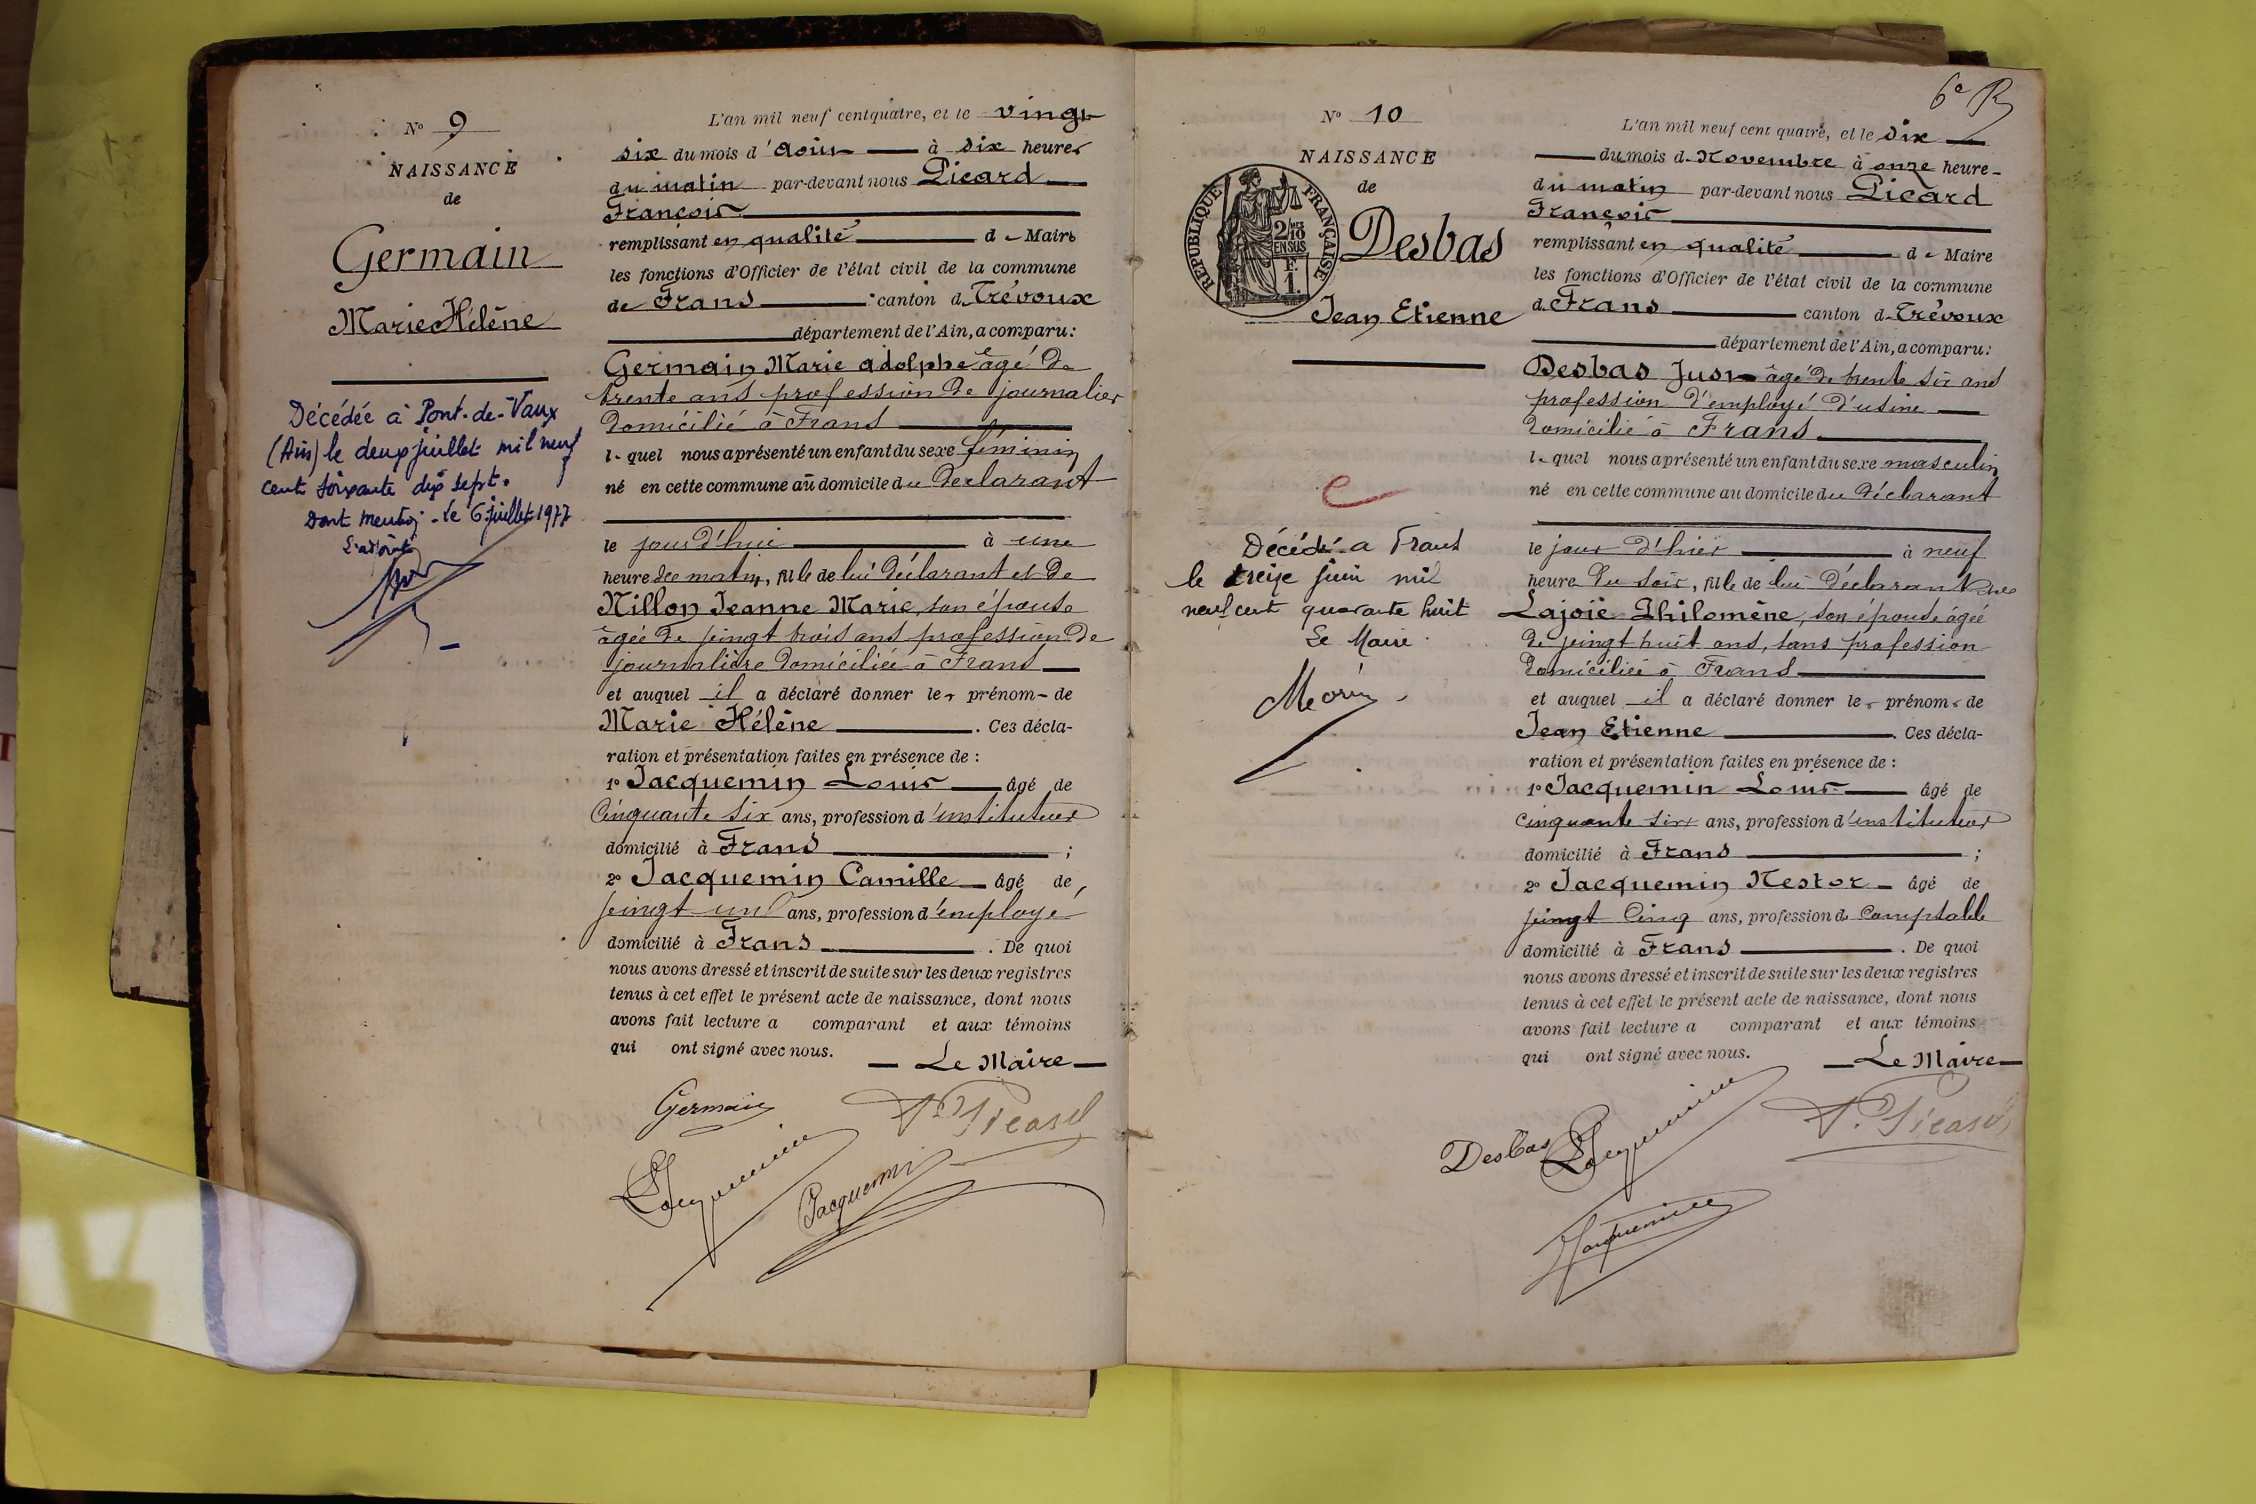 N° 9
NAISSANCE
de
Germain
Marie Hélène
Décédée à Pont-de-Vaux
(Ain) le deux juillet mil neuf
cent soixante dix sept.
Dont mention - le 6 juillet 1977
L'adjoint
L'an mil neuf cent quatre, et le vingt
six du mois d'août à six heures
du matin par-devant nous Picard
François
remplissant en qualité de Maire
les fonctions d'Officier de l'état civil de la commune
de Frans canton de Trévoux
département de l'Ain, a comparu:
Germain Marie adolphe âgé de
trente ans profession de journalier
domicilié à Frans
lequel nous a présenté un enfant du sexe féminin
né en cette commune au domicile du Déclarant
le jour d'hui à une
heure du matin, fille de lui déclarant et de
Nillon Jeanne Marie, son épouse
âgée de vingt trois ans profession de
journalière domiciliée à Frans
et auquel il a déclaré donner les prénoms de
Marie Hélène. Ces décla-
ration et présentation faites en présence de :
1° Jacquemin Louis âgé de
Cinquante six ans, profession d'instituteur
domicilié à Frans ;
2° Jacquemin Camille âgé de
vingt un ans, profession d'employé
domicilié à Frans. De quoi
nous avons dressé et inscrit de suite sur les deux registres
tenus à cet effet le présent acte de naissance, dont nous
avons fait lecture a comparant et aux témoins
qui ont signé avec nous.
Le Maire
Germain
F. Picard
L Jacquemin
Jacquemin
6e R
N° 10
NAISSANCE
de
RÉPUBLIQUE FRANÇAISE
2/10 EN SUS
F. 1.
Desbas
Jean Etienne
Décédé a Frans
le treize juin mil
neuf cent quarante huit
Le Maire
Morin
L'an mil neuf cent quatre, et le six
du mois de Novembre à onze heure
du matin par-devant nous Picard
François
remplissant en qualité de Maire
les fonctions d'Officier de l'état civil de la commune
de Frans canton de Trévoux
département de l'Ain, a comparu:
Desbas Just âgé de trente six ans
profession d'employé d'usine
domicilié à Frans
lequel nous a présenté un enfant du sexe masculin
né en cette commune au domicile du déclarant
le jour d'hier à neuf
heure du soir, fils de lui déclarant et de
Lajoie Philomène, son épouse âgée
de vingt huit ans, sans profession
domiciliée à Frans
et auquel il a déclaré donner les prénoms de
Jean Etienne. Ces décla-
ration et présentation faites en présence de :
1° Jacquemin Louis âgé de
cinquante six ans, profession d'instituteur
domicilié à Frans ;
2° Jacquemin Nestor âgé de
vingt cinq ans, profession de comptable
domicilié à Frans. De quoi
nous avons dressé et inscrit de suite sur les deux registres
tenus à cet effet le présent acte de naissance, dont nous
avons fait lecture a comparant et aux témoins
qui ont signé avec nous.
Le Maire
Desbas
L Jacquemin
F. Picard
Jacquemin